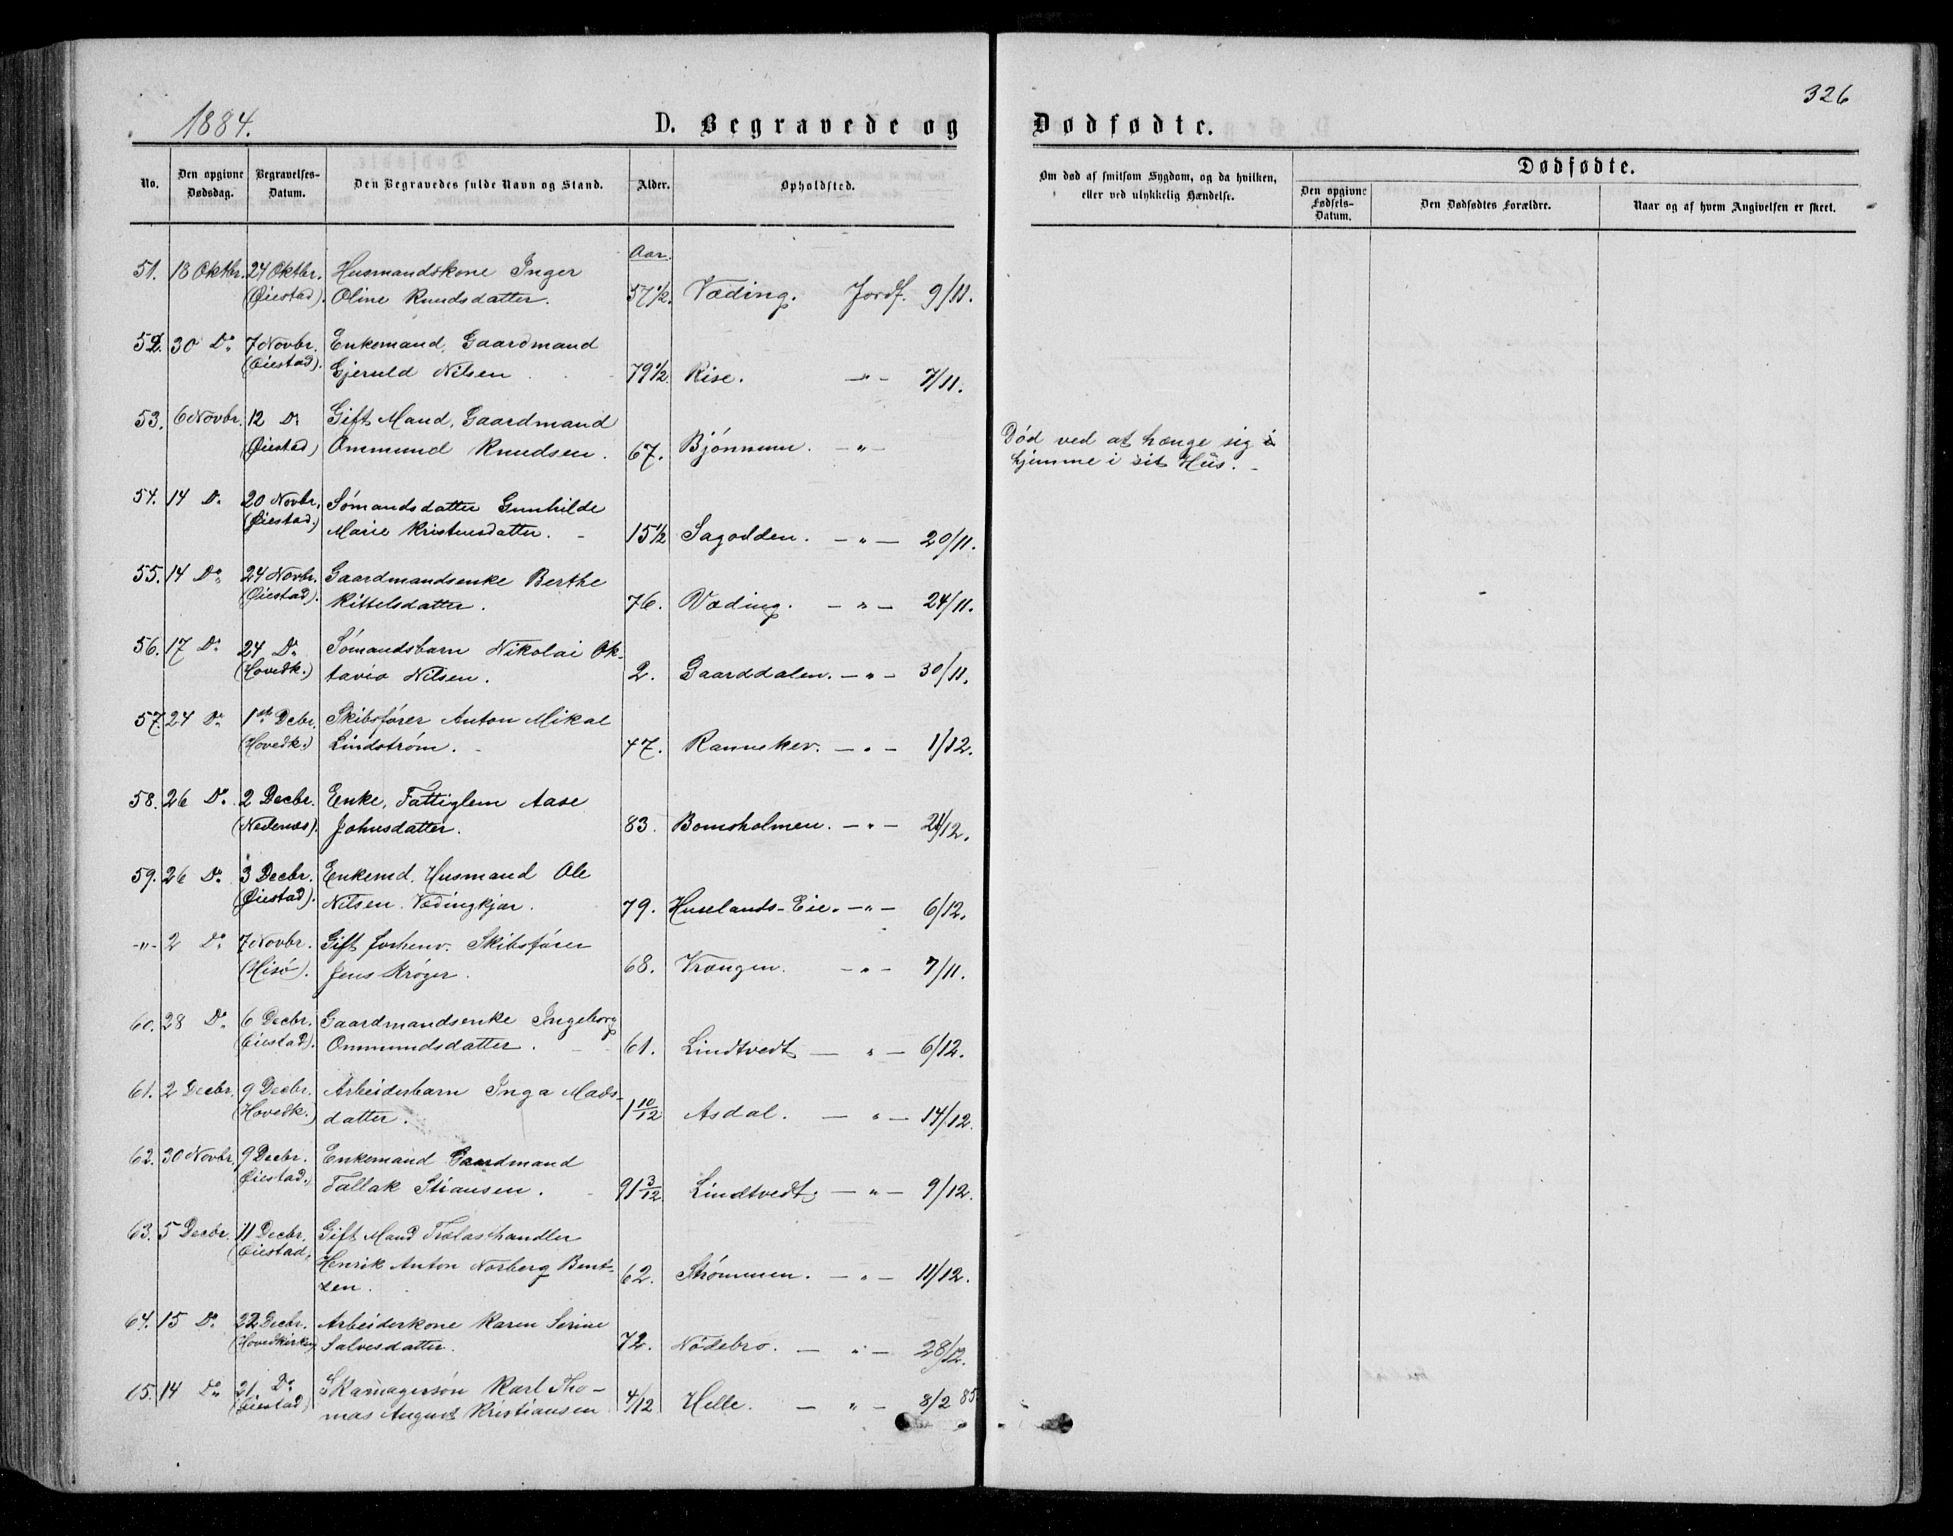 1884.
D. Begravede og
Dødfødte.
326
No.
Den opgivne Dødsdag.
Begravelses-Datum.
Den Begravedes fulde Navn og Stand.
Alder.
Opholdsted.
Om død af smitsom Sygdom, og da hvilken, eller ved ulykkelig Hændelse.
Dødfødte.
Den opgivne Fødsels-Datum.
Den Dødfødtes Forældre.
Naar og af hvem Angivelsen er skeet.
Aar.
51. 18 Oktbr. 24 Oktbr. Husmandskone Inger
(Øiestad). Oline Knudsdatter. 57 1/2. Væding. Jordf. 9/11.
52. 30 Do 7 Novbr. Enkemand, Gaardmand
(Øiestad). Gjeruld Nilsen 79 1/2. Rise. -"- 7/11.
53. 6 Novbr. 12 Do Gift Mand, Gaardmand
(Øiestad) Ommund Knudsen. 67. Bjönnum. -"-
Død ved at hænge sig
hjemme i sit Hus.
54. 14 Do 20 Novbr. Sömandsdatter Gunhilde
(Øiestad.) Marie Kristensdatter. 15 1/2 Sagodden. -"- 20/11.
55. 14 Do 24 Novbr. Gaardmandsenke Berthe
(Øiestad). Kittelsdatter. 76. Væding. -"- 24/11.
56. 17 Do 24 Do Sömandsbarn Nikolai Ok-
(Hovedk.) tavio Nilsen. 2. Gaarddalen. -"- 30/11.
57. 24 Do 1ste Debr. Skibsförer Anton Mikal
(Hovedk.) Lindström. 47. Rannekev. -"- 1/12.
58. 26 Do 2 Decbr. Enke, Fattiglem Aase
(Nedenæs). Johnsdatter. 83. Bomsholmen. -"- 21/12.
59. 26 Do 3 Decbr. Enkemd. Husmand Ole
(Øiestad). Nilsen. Vædingkjær. 79. Huselands-Eie. -"- 6/12.
-"- 2 Do 7 Novbr. Gift forhenv. Skibsförer
(Hisö). Jens Kröger. 68. Vrængen. -"- 7/11.
60. 28 Do 6 Decbr. Gaardmandsenke Ingeborg
(Øiestad). Ommundsdatter. 61. Lindtvedt -"- 6/12.
61. 2 Decbr. 9 Decbr. Arbeiderbarn Inga Mads-
(Hovedk.) datter. 1 10/12 Asdal. -"- 14/12.
62. 30 Novbr. 9 Decbr. Enkemand Gaardmand
(Øiestad.) Tallak Stiansen. 91 3/12 Lindtvedt. -"- 9/12.
63. 5 Decbr. 11 Decbr. Gift Mand Trælasthandler
(Øiestad, Henrik Anton Norberg Bent-
zen. 62. Strömmen. -"- 11/12.
64. 15 Do 22 Decbr. Arbeiderkone Karen Serine
(Hovedkirken) Salvesdatter. 72. Nödebro. -"- 28/12.
65. 14 Do 21 Do Skomagersön Karl Tho-
(Øiestad) mas August Kristiansen 4/12 Helle. -"- 8/2 85